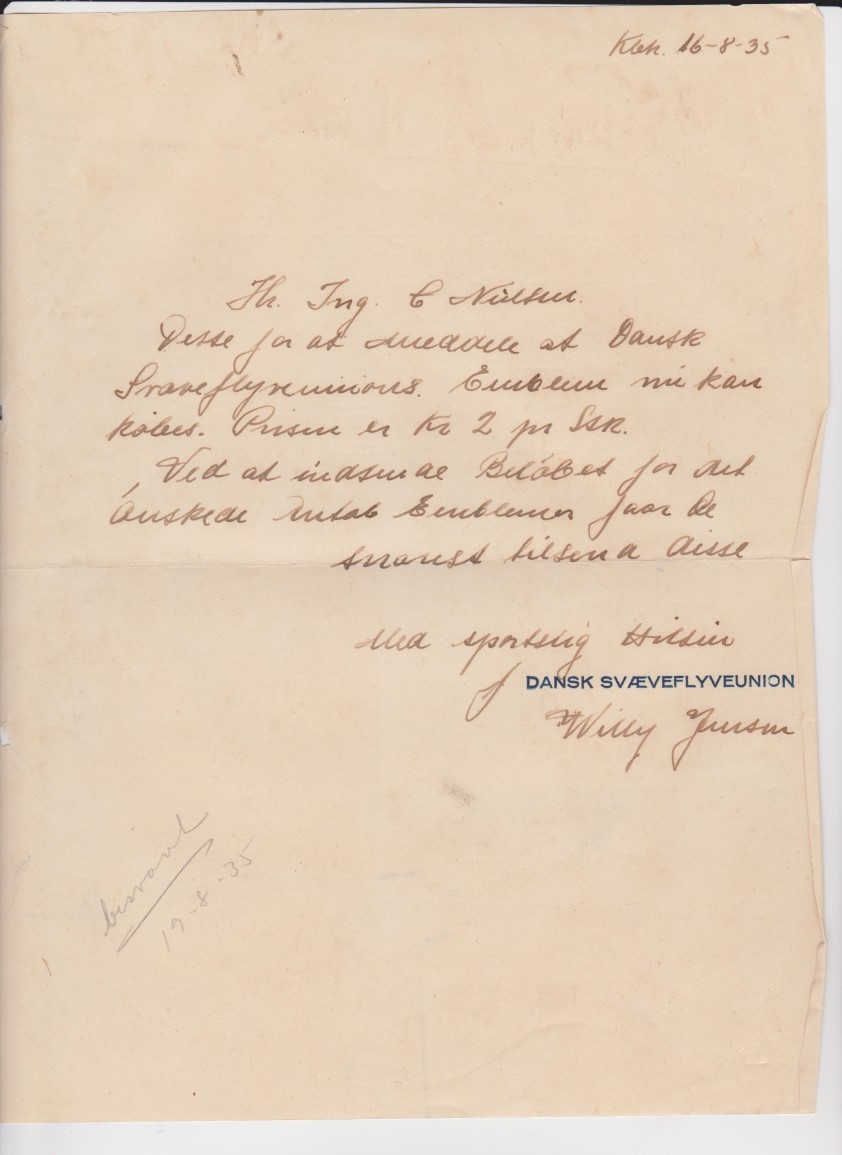 Kbh. 16-8-35
Hr. Ing. C Nielsen.
Desse for at meddele at Dansk
Svæveflyveunions. Emblem nu kan
købes. Prisen er Kr 2 pr Stk.
Ved at indsende Beløbet for det
ønskede Antal Emblemer faar De
snarest tilsend disse
Med sportslig Hilsen
f DANSK SVÆVEFLYVEUNION
Willy Jensen
besvaret
19-8-35